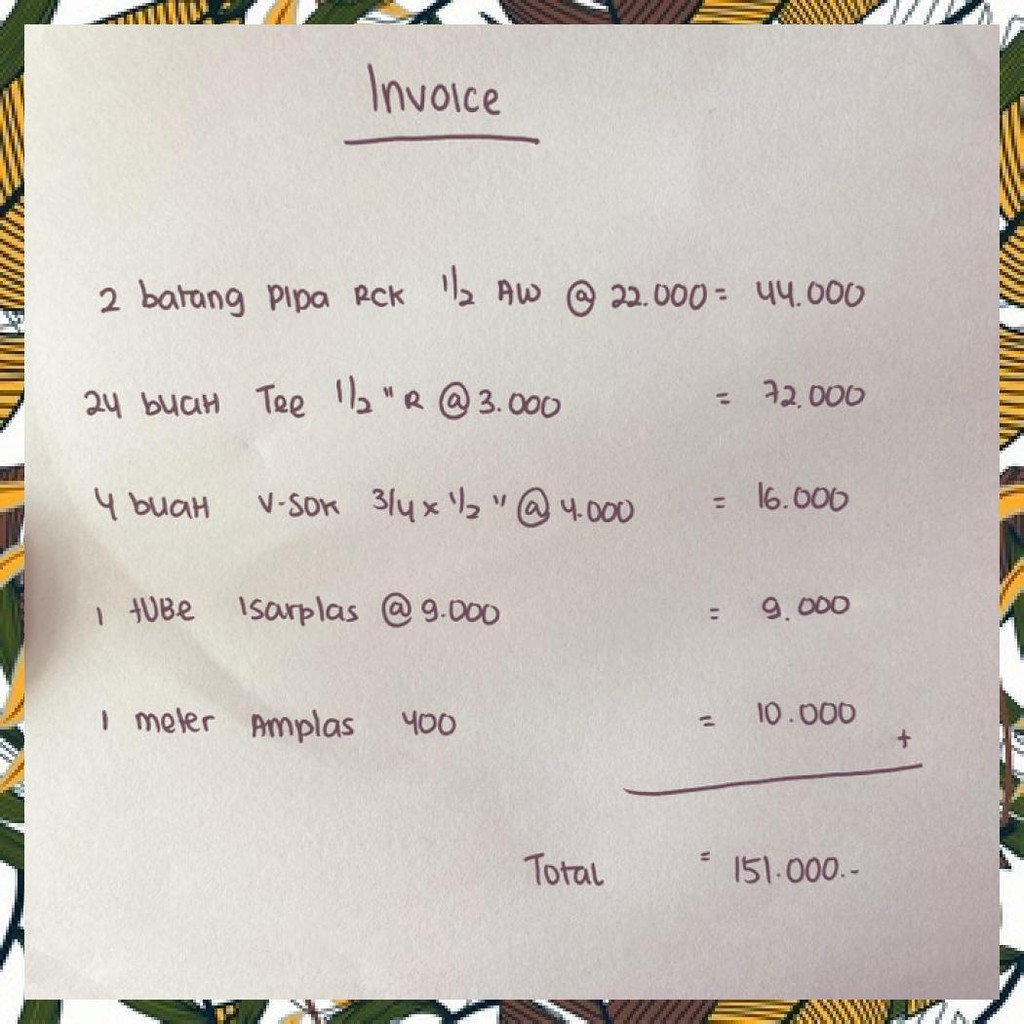 Invoice
2 batang Pipa RCK 1/2 AW @ 22.000 = 44.000
24 buah Tee 1/2 " R @ 3.000 = 72.000
4 buah V-Sok 3/4 x 1/2 " @ 4.000 = 16.000
1 tube Isarplas @ 9.000 = 9.000
1 meter Amplas 400 = 10.000
+
Total = 151.000.-